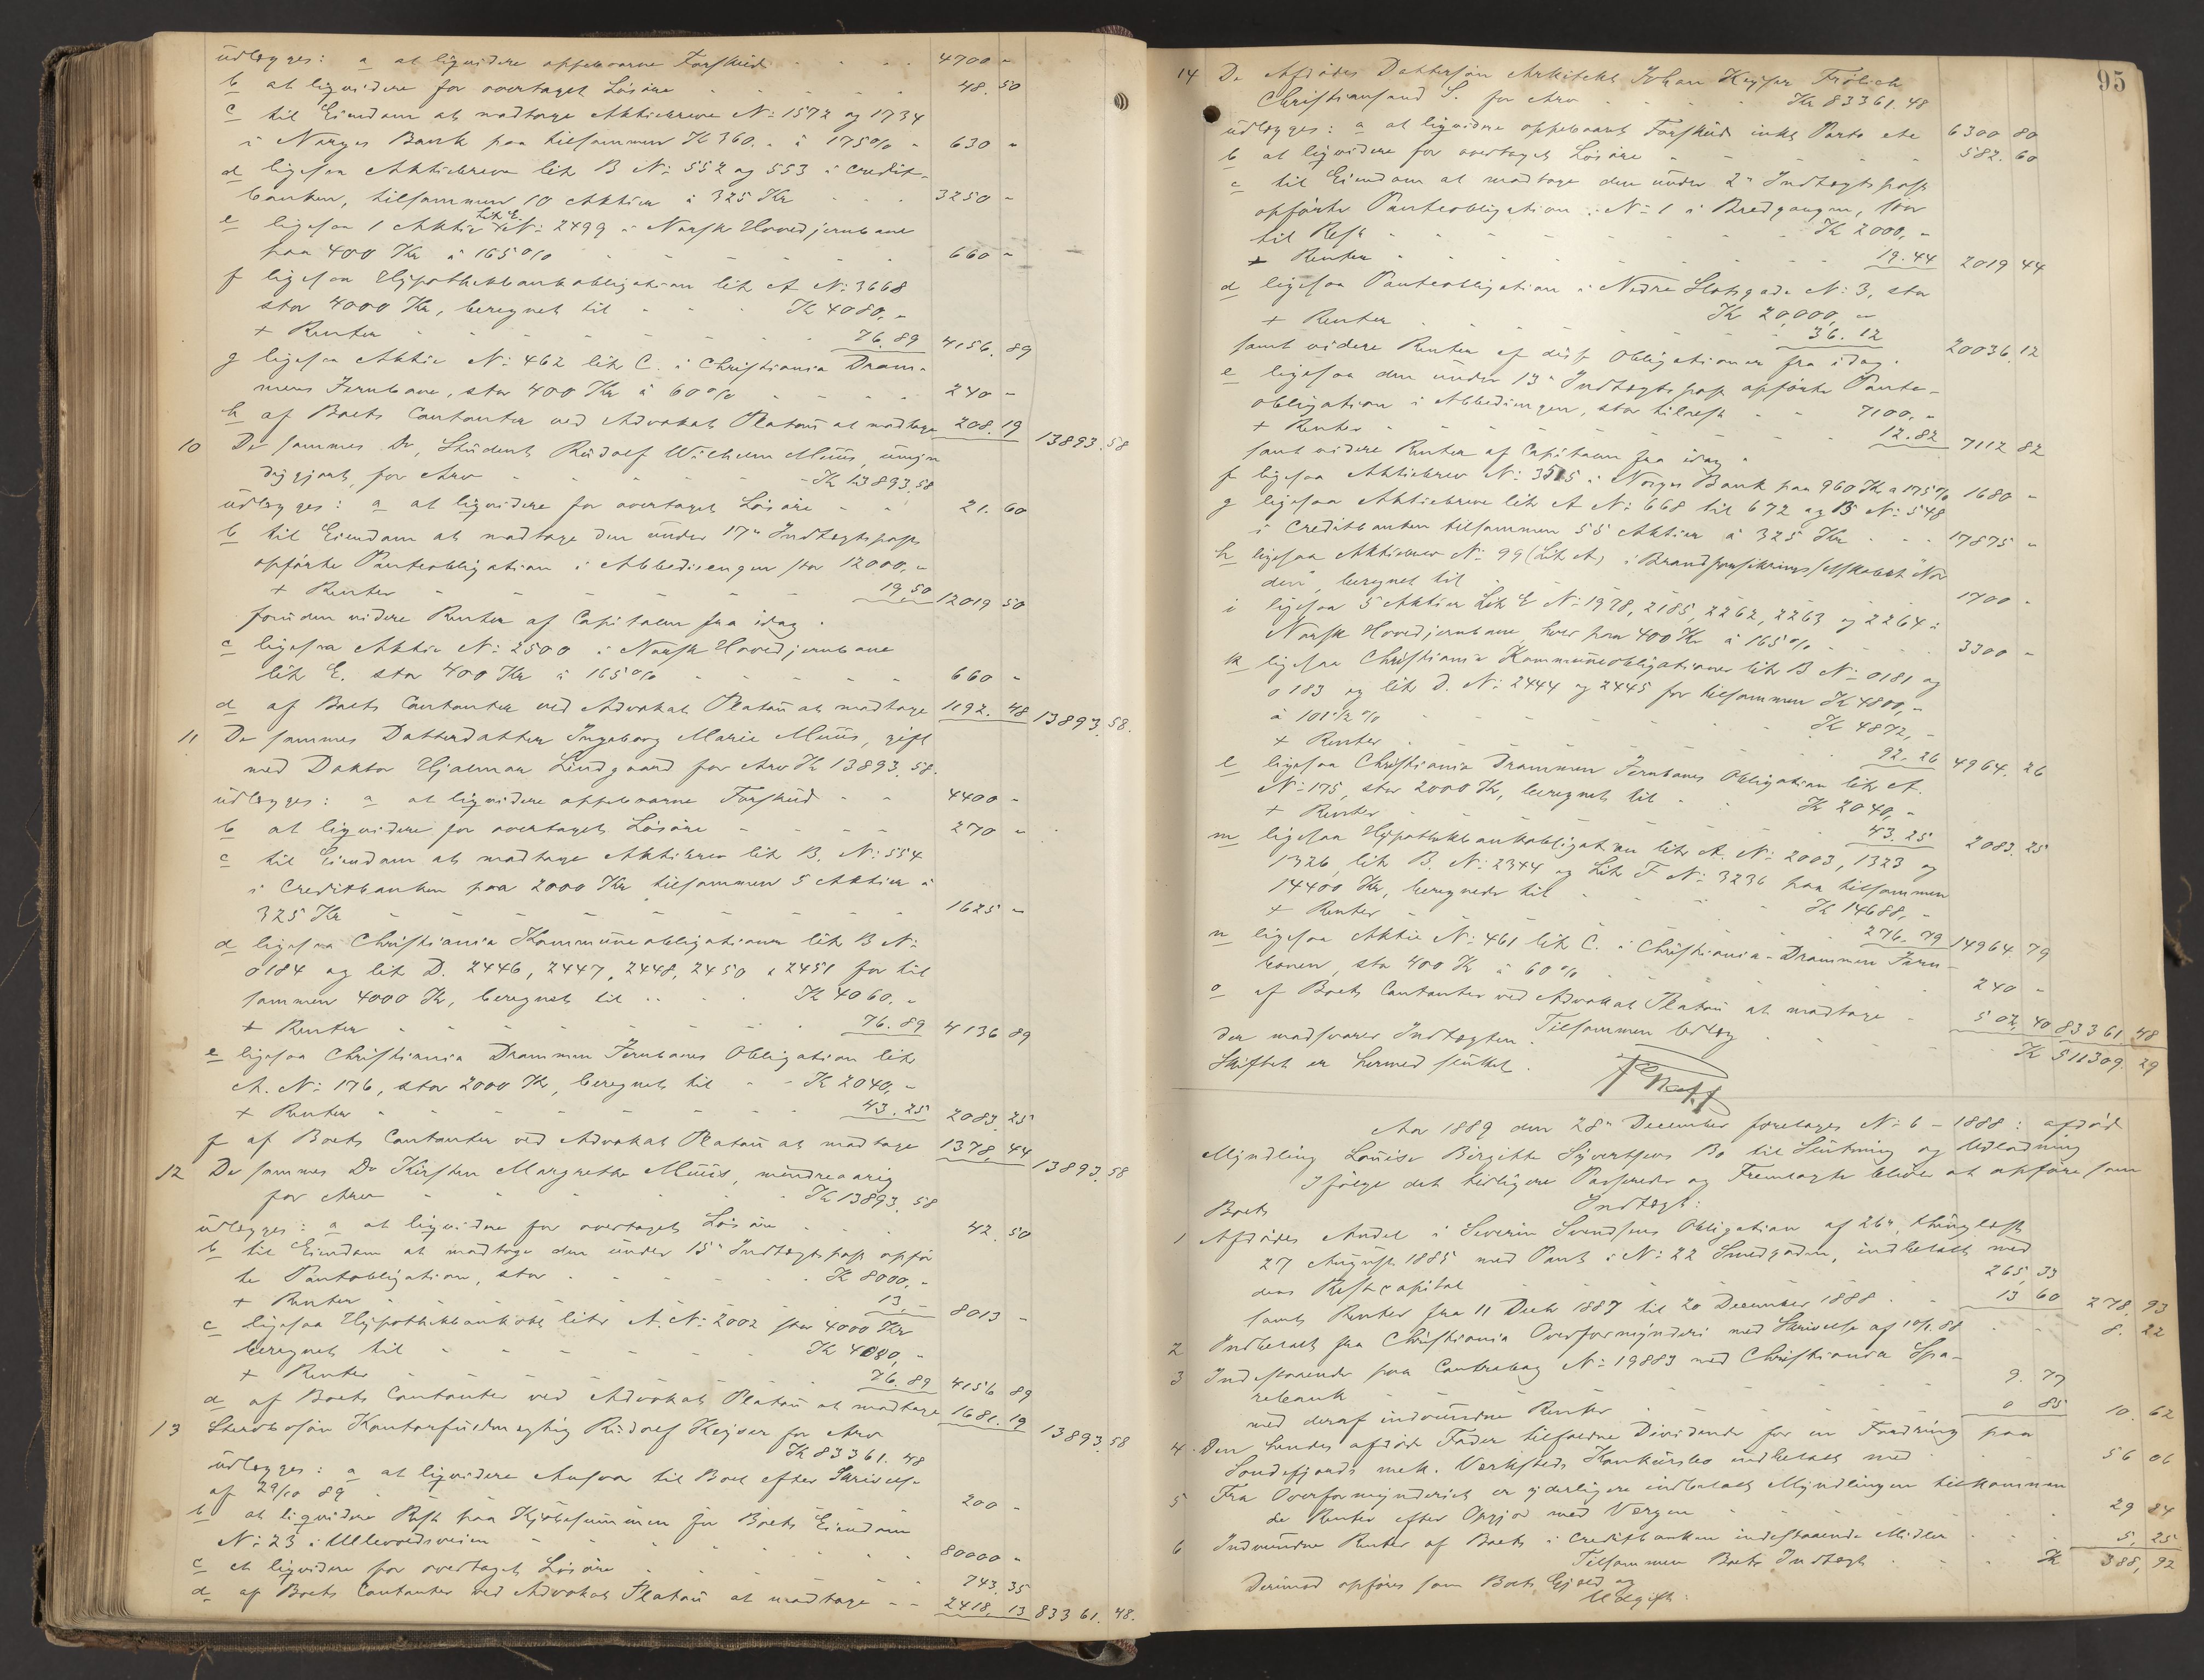 udlægges: a at liqvidere oppebaarne Forskud 4700 "
b at liqvidere for overtaget Løsøre 48. 50
c til Eiendom at modtage Aktiebreve No: 1572 og 1734
i Norges Bank paa tilsammen Kr 360. " à 175% " 630 "
d ligesaa Aktiebreve litr B No: 552 og 553 i Credit-
banken, tilsammen 10 Aktier à 325 Kr 3250 "
e ligesaa 1 Aktie Litr E. No: 2499 i Norsk Hovedjernbane
paa 400 Kr à 165% 660 "
f ligesaa Hypothekbankobligation litr A No: 3668
stor 4000 Kr, beregnet til Kr 4080. "
+ Renter 76. 89 4156. 89
g ligesaa Aktie No: 462 litr C. i Christiania Dram-
mens Jernbane, stor 400 Kr à 60% 240 "
h af Boets Contanter ved Advokat Platou at modtage 208. 19 13893. 58
10 De sammes Dr, Student Rudolf Wilhelm Muus, umyn
diggjort, for Arv Kr 13893. 58
udlægges: a at liqvidere for overtaget Løsøre 21. 60
b til Eiendom at modtage den under 17de Indtægtspost
opførte Panteobligation i Abbediengen stor 12000. "
+ Renter 19. 50 12019 50
foruden videre Renter af Capitalen fra idag.
c ligesaa Aktie No: 2500 i Norsk Hovedjernbane
litr E. stor 400 Kr à 165% 660 "
d af Boets Contanter ved Advokat Platou at modtage 1192. 48 13893. 58.
11 De sammes Datterdatter Ingeborg Marie Muus, gift
med Doktor Hjalmar Lindgaard for Arv Kr 13893. 58.
udlægges: a at liqvidere oppebaarne Forskud 4400 "
b at liqvidere for overtaget Løsøre 270 "
c til Eiendom at modtage Aktiebrev litr B. No: 554
i Creditbanken paa 2000 Kr tilsammen 5 Aktier à
325 Kr 1625 "
d ligesaa Christiania Kommuneobligationer litr B No:
0184 og litr D. 2446, 2447, 2448, 2450 & 2451 for til
sammen 4000 Kr, beregnet til Kr 4060. "
+ Renter 76. 89 4136 89
e ligesaa Christiania Drammen Jernbanes Obligation litr
A. No: 176, stor 2000 Kr, beregnet til Kr 2040, "
+ Renter 43. 25 2083. 25
f af Boets Contanter ved Advokat Platou at modtage 1378, 44 13893. 58
12 De sammes Dr Kirsten Margrethe Muus, mindreaarig
for Arv Kr 13893. 58
udlægges: a at liqvidere for overtaget Løsøre 42. 50
b til Eiendom at modtage den under 15de Indtægtspost opfør
te Pantobligation, stor Kr 8000, "
+ Renter 13, " 8013 "
c ligesaa Hypothekbankobl litr A. No: 2002 stor 4000 Kr
beregnet til Kr 4080, "
+ Renter 76. 89 4156 89
d af Boets Contanter ved Advokat Platou at modtage 1681. 19 13893. 58
13 Stervbosøn Kontorfuldmægtig Rudolf Keyser for Arv
Kr 83361. 48
udlægges: a at liqvidere Ansvar til Boet efter Skrivelse
af 29/10 89 200 "
b at liqvidere Rest paa Kjøbesummen for Boets Eiendom
No: 23 i Ullevoldsveien 80000 "
c at liqvidere for overtaget Løsøre 743. 35
d af Boets Contanter ved Advokat Platou at modtage 2418. 13 83361. 48.
95
14 De Afdødes Dattersøn Arkitekt Johan Keyser Frølich
Christiansand S. for Arv Kr 83361. 48
udlægges: a at liqvidere oppebaaret Forskud inkl Porto etc 6300 80
b at liqvidere for overtaget Løsøre 582. 60
c til Eiendom at modtage den under 2den Indtægtspost
opførte Panteobligation i No: 1 i Bredgangen, stor
til Rest Kr 2000, "
+ Renter 19. 44 2019 44
d ligesaa Panteobligation i Nedre Slotsgade No: 3, stor
Kr 20,000, "
+ Renter 36. 12 20036. 12
samt videre Renter af disse Obligationer fra idag.
e ligesaa den under 13de Indtægtspost opførte Pante-
obligation i Abbediengen, stor tilrest 7100, "
+ Renter 12. 82 7112 82
samt videre Renter af Capitalen fra idag.
f ligesaa Aktiebrev No: 3515 i Norges Bank paa 960 Kr à 175% 1680 "
g ligesaa Aktiebreve litr A No: 668 til 672 og B No: 548
i Creditbanken tilsammen 55 Aktier à 325 Kr 17875 "
h ligesaa Aktiebrev No: 99 (Litr A) i Brandforsikringsselskabet "Nor
den", beregnet til 1700 "
i ligesaa 5 Aktier Litr E No: 1978, 2185, 2262, 2263 og 2264 i
Norsk Hovedjernbane, hver paa 400 Kr à 165% 3300 "
k ligesaa Christiania Kommuneobligationer litr B No: 0181 og
0183 og litr D. No: 2444 og 2445 for tilsammen Kr 4800, "
à 101½% Kr 4872, "
+ Renter 92. 26 4964. 26
l ligesaa Christiania Drammen Jernbanes Obligation litr A.
No: 175, stor 2000 Kr, beregnet til Kr 2040, "
+ Renter 43. 25 2083. 25
m ligesaa Hypothekbankobligationer litr A. No: 2003, 1323 og
1326, litr B. No: 2344 og Litr F No: 3236 paa tilsammen
14400 Kr, beregnede til Kr 14688, "
+ Renter 276. 79 14964. 79
n ligesaa Aktie No: 461 litr C. i Christiania-Drammen Jern-
banen, stor 400 Kr à 60% 240 "
o af Boets Contanter ved Advokat Platou at modtage 502, 40 83361. 48
Tilsammen Udlæg Kr 511309. 29
der modsvarer Indtægten.
Skiftet er hermed sluttet.
Aar 1889 den 28de December foretoges No: 6 - 1888: afdød
Myndling Louise Birgitte Syvertsens Bo til Slutning og Udlodning
Ifølge det tidligere Passerede og Fremlagte bliver at opføre som
Boets Indtægt:
1 Afdødes Andel i Severin Svendsens Obligation af 26de, thinglæst
27 August 1885 med Pant i No: 22 Smedgaden, indbetalt med
dens Restcapital 265, 33
samt Renter fra 11 Decbr 1887 til 20 December 1888 13 60 278, 93
2 Indbetalt fra Christiania Overformynderi med Skrivelse af 10/1. 88 8. 22
3 Indestaaende paa Contrabog No: 19883 med Christiania Spa-
rebank 9. 77
med deraf indvundne Renter 0 85 10. 62
4. Den hendes afdøde Fader tilfaldne Dividende for en Fordring paa
Sandefjords mek. Verksteds Konkursbo indbetalt med 56 06
5 Fra Overformynderiet er yderligere indbetalt Myndlingen tilkommen
de Renter efter Opgjør med Værgen 29 84
6 Indvundne Renter af Boets i Creditbanken indestaaende Midler 5, 25
Tilsammen Boets Indtægt Kr 388, 92
Derimod opføres som Boets Gjæld og
Udgift: